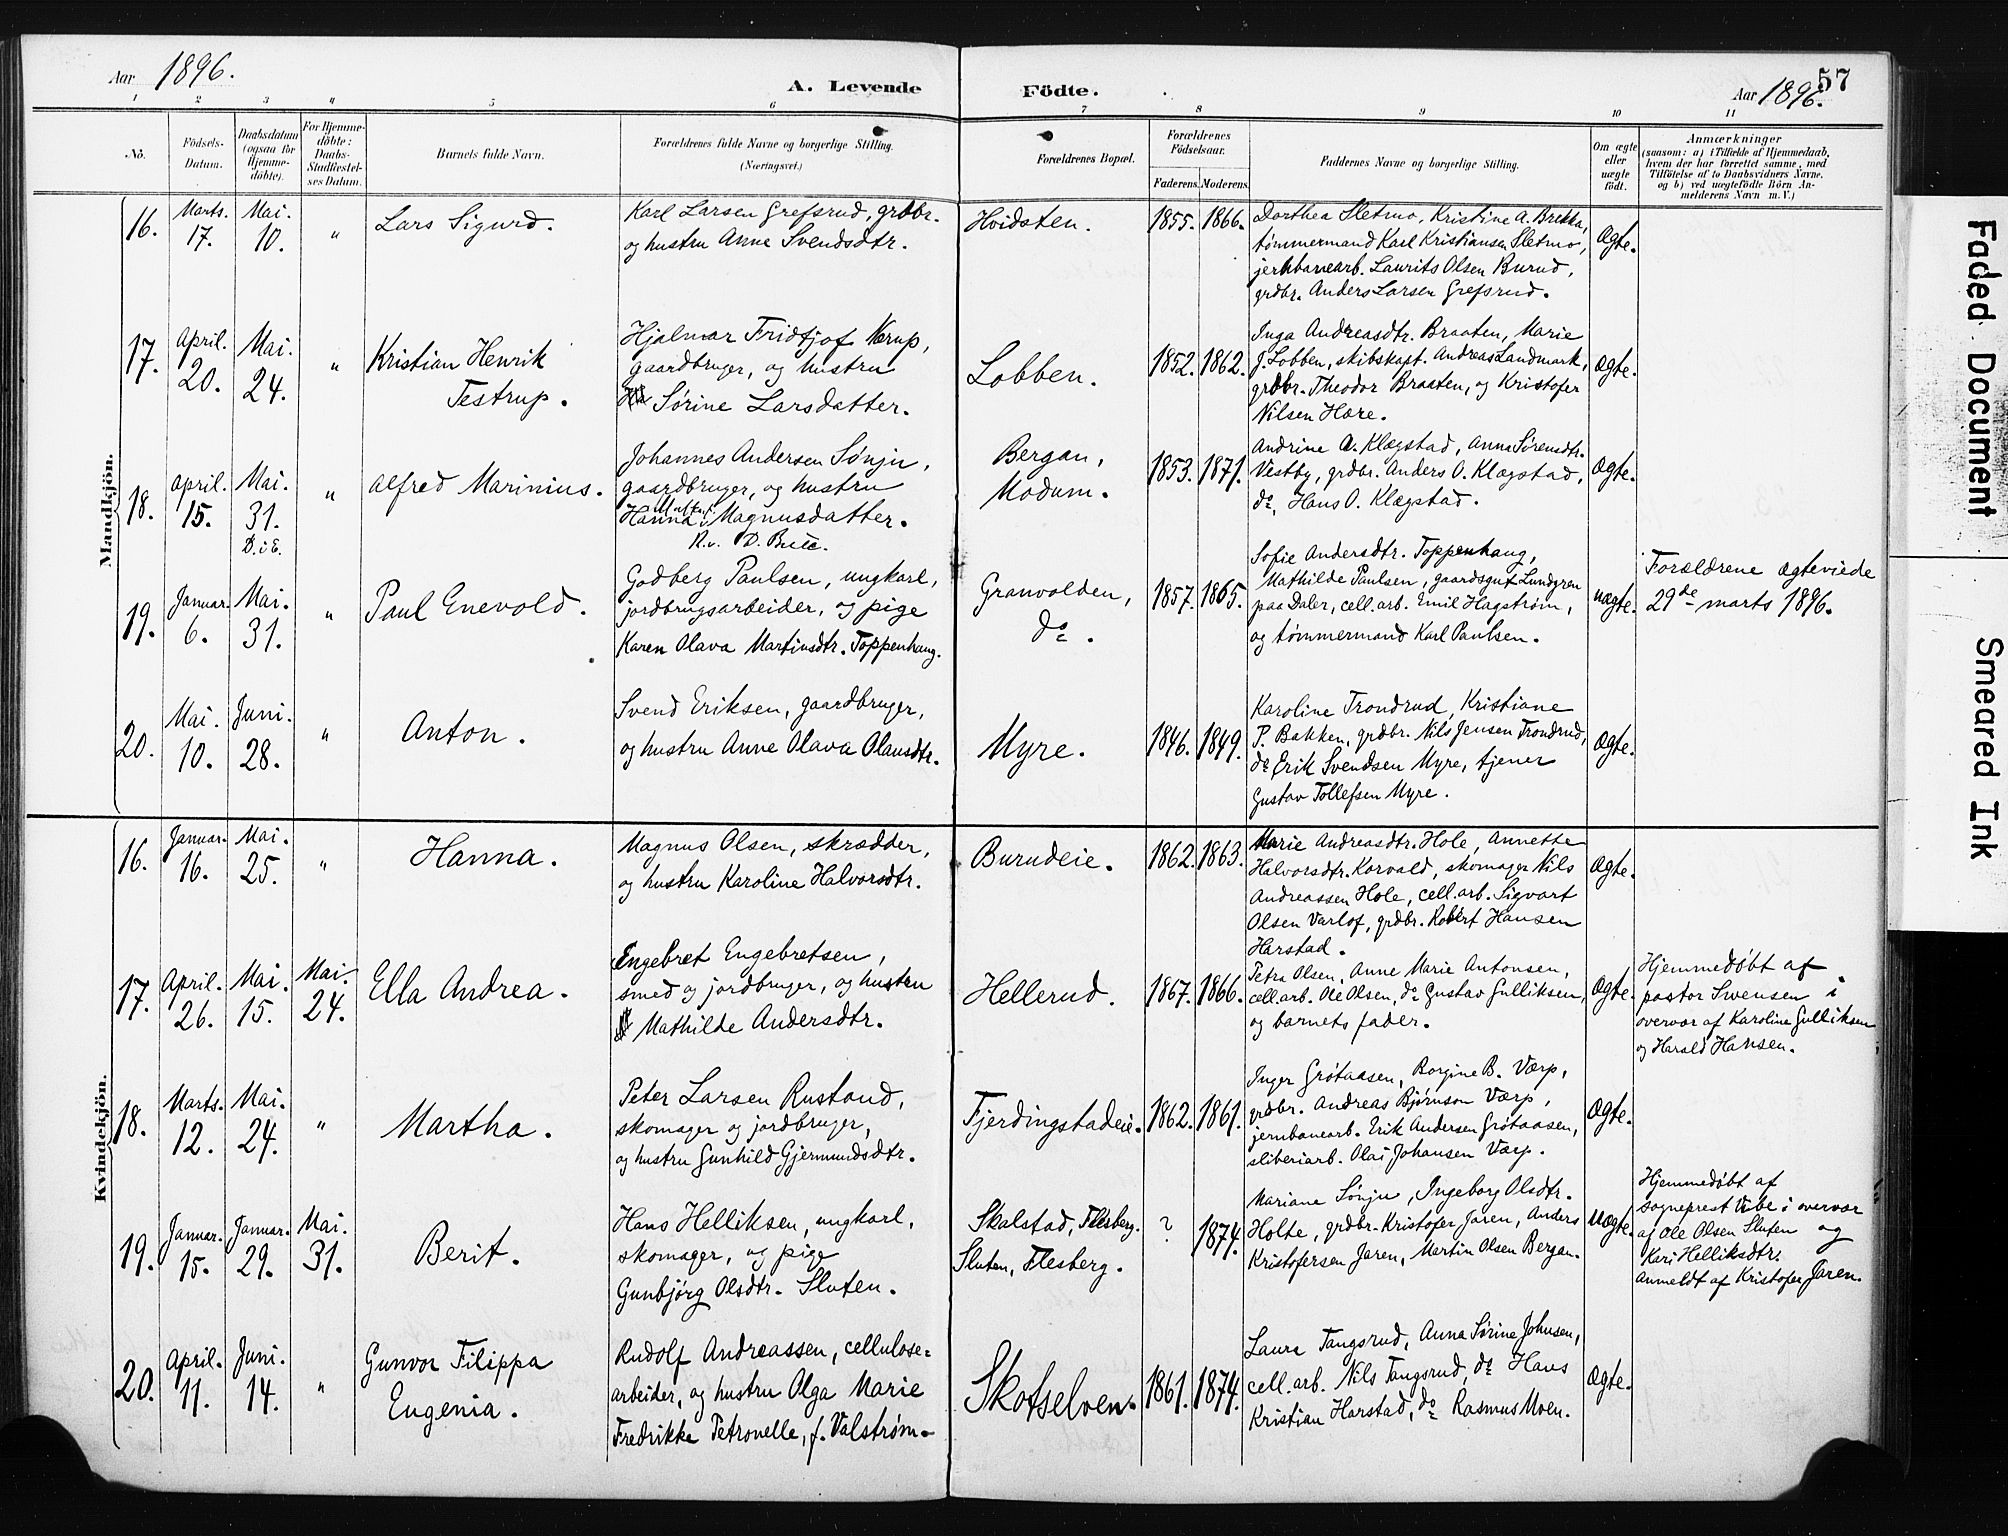 Aar 1896.
A. Levende Födte.
Aar 1896.
57
1 2 3 4 5 6 7 8 9 10 11
No.
Födsels-
Datum.
Daabsdatum
(ogsaa for
Hjemme-
döbte).
For Hjemme-
döbte:
Daabs-
Stadfæstel-
ses Datum.
Barnets fulde Navn.
Forældrenes fulde Navne og borgerlige Stilling.
(Næringsvei.)
Forældrenes Bopæl.
Forældrenes
Födselsaar.
Faderens. Moderens.
Faddernes Navne og borgerlige Stilling.
Om ægte
eller
uægte
födt.
Anmærkninger
(saasom: a) i Tilfælde af Hjemmedaab,
hvem der har forrettet samme, med
Tilföielse af to Daabsvidners Navne.
og b) ved uægtefödte Börn An-
melderens Navn m. V.)
Mandkjön.
16.
Marts.
17.
Mai.
10.
"
Lars Sigurd.
Karl Larsen Grefsrud, grdbr.
og hustru Anne Svendsdtr.
Hvidsten.
1855. 1866.
Dorthea Sletmo, Kristine A. Brekka,
tømmermand Karl Kristiansen Sletmo,
jernbanearb. Laurits Olsen Burud,
grdbr. Anders Larsen Grefsrud.
Ægte.
17.
April.
20.
Mai.
24.
"
Kristian Henrik
Testrup.
Hjalmar Fridtjof Nerup,
gaardbruger, og hustru
Sørine Larsdatter.
Lobben.
1852. 1862.
Inga Andreasdtr. Braaten, Marie
J. Lobben, skibskapt. Andreas Landmark,
grdbr. Theodor Braaten, og Kristofer
Nilsen Hære.
Ægte.
18.
April.
15.
Mai.
31.
D. i E.
"
Alfred Marinius.
Johannes Andersen Sønju,
gaardbruger, og hustru
Hanna Magnusdatter.
Bergan,
Modum.
1853. 1871.
Andrine A. Klægstad, Anna Sørensdtr.
Vestby, grdbr. Anders O. Klægstad,
do, Hans O. Klægstad.
Ægte.
19.
Januar.
6.
Mai.
31.
"
Paul Enevold.
Godberg Paulsen, ungkarl,
jordbrugsarbeider, og pige
Karen Olava Martinsdtr. Toppenhaug.
Granvolden,
do.
1857. 1865.
Sofie Andersdtr. Toppenhaug,
Mathilde Paulsen, gaardsgut Lundgren
paa Daler, cell.arb. Emil Hagstrøm,
og tømmermand Karl Paulsen.
uægte.
Forældrene ægteviede
29de marts 1896.
20.
Mai.
10.
Juni.
28.
"
Anton.
Svend Eriksen, gaardbruger,
og hustru Anne Olava Olausdtr.
Myre.
1846. 1849.
Karoline Trondrud, Kristiane
P. Bakken, grdbr. Nils Jensen Trondrud,
do Erik Svendsen Myre, tjener
Gustav Tollefsen Myre.
Ægte.
Kvindekjön.
16.
Januar.
16.
Mai.
25.
"
Hanna.
Magnus Olsen, skrædder,
og hustru Karoline Halvorsdtr.
Burudeie.
1862. 1863.
Marie Andreasdtr. Hole, Annette
Halvorsdtr. Korvald, skomager Nils
Andreassen Hole, cell.arb. Sigvart
Olsen Varlof, grdbr. Robert Hansen
Harstad.
Ægte.
17.
April.
26.
Mai.
15.
Mai.
24.
Ella Andrea.
Engebret Engebretsen,
smed og jordbruger, og hustru
Mathilde Andersdtr.
Hellerud.
1867. 1866.
Petra Olsen, Anne Marie Antonsen,
cell.arb. Ole Olsen, do Gustav Gulliksen,
og barnets fader.
Ægte.
Hjemmedøbt af
pastor Svensen i
overvær af Karoline Gulliksen
og Harald Hansen.
18.
Marts.
12.
Mai.
24.
"
Martha.
Peter Larsen Rustand,
skomager og jordbruger,
og hustru Gunhild Gjermundsdtr.
Fjerdingstadeie.
1862. 1861.
Inger Grøtaasen, Borgine B. Værp,
grdbr. Andreas Bjørnson Værp,
jernbanearb. Erik Andersen Grøtaasen,
sliberiarb. Olai Johansen Værp.
Ægte.
19.
Januar.
15.
Januar.
29.
Mai.
31.
Berit.
Hans Helliksen, ungkarl,
skomager, og pige
Gunbjørg Olsdtr. Sluten.
Skalstad, Flesberg.
Sluten, Flesberg.
? 1874.
Mariane Sønju, Ingeborg Olsdtr.
Holte, grdbr. Kristofer Jaren, Anders
Kristofersen Jaren, Martin Olsen Bergan.
Uægte.
Hjemmedøbt af
sogneprest Vibe i overvær
af Ole Olsen Sluten og
Kari Helliksdtr.
Anmeldt af Kristofer Jaren.
20.
April.
11.
Juni.
14.
"
Gunvor Filippa
Eugenia.
Rudolf Andreassen, cellulose=
arbeider, og hustru Olga Marie
Fredrikke Petronelle, f. Valstrøm.
Skotselven.
1861. 1874.
Laura Tangsrud, Anna Sørine Johnsen,
cell.arb. Nils Tangsrud, do Hans
Kristian Harstad, do Rasmus Moen.
Ægte.
Faded Document
Smeared Ink